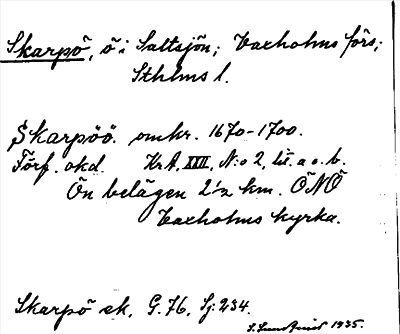 Skarpö, ö i Saltsjön; Vaxholms förs;
Sthlms l.
Skarpöö. omkr. 1670-1700.
Förf. okd. Kr.A. XXIII, N:o 2, lit. a o. b.
Ön belägen 2 1/2 km. ÖNÖ
Vaxholms kyrka.
Skarpö ek, G.76, Sj: 234.
1935.